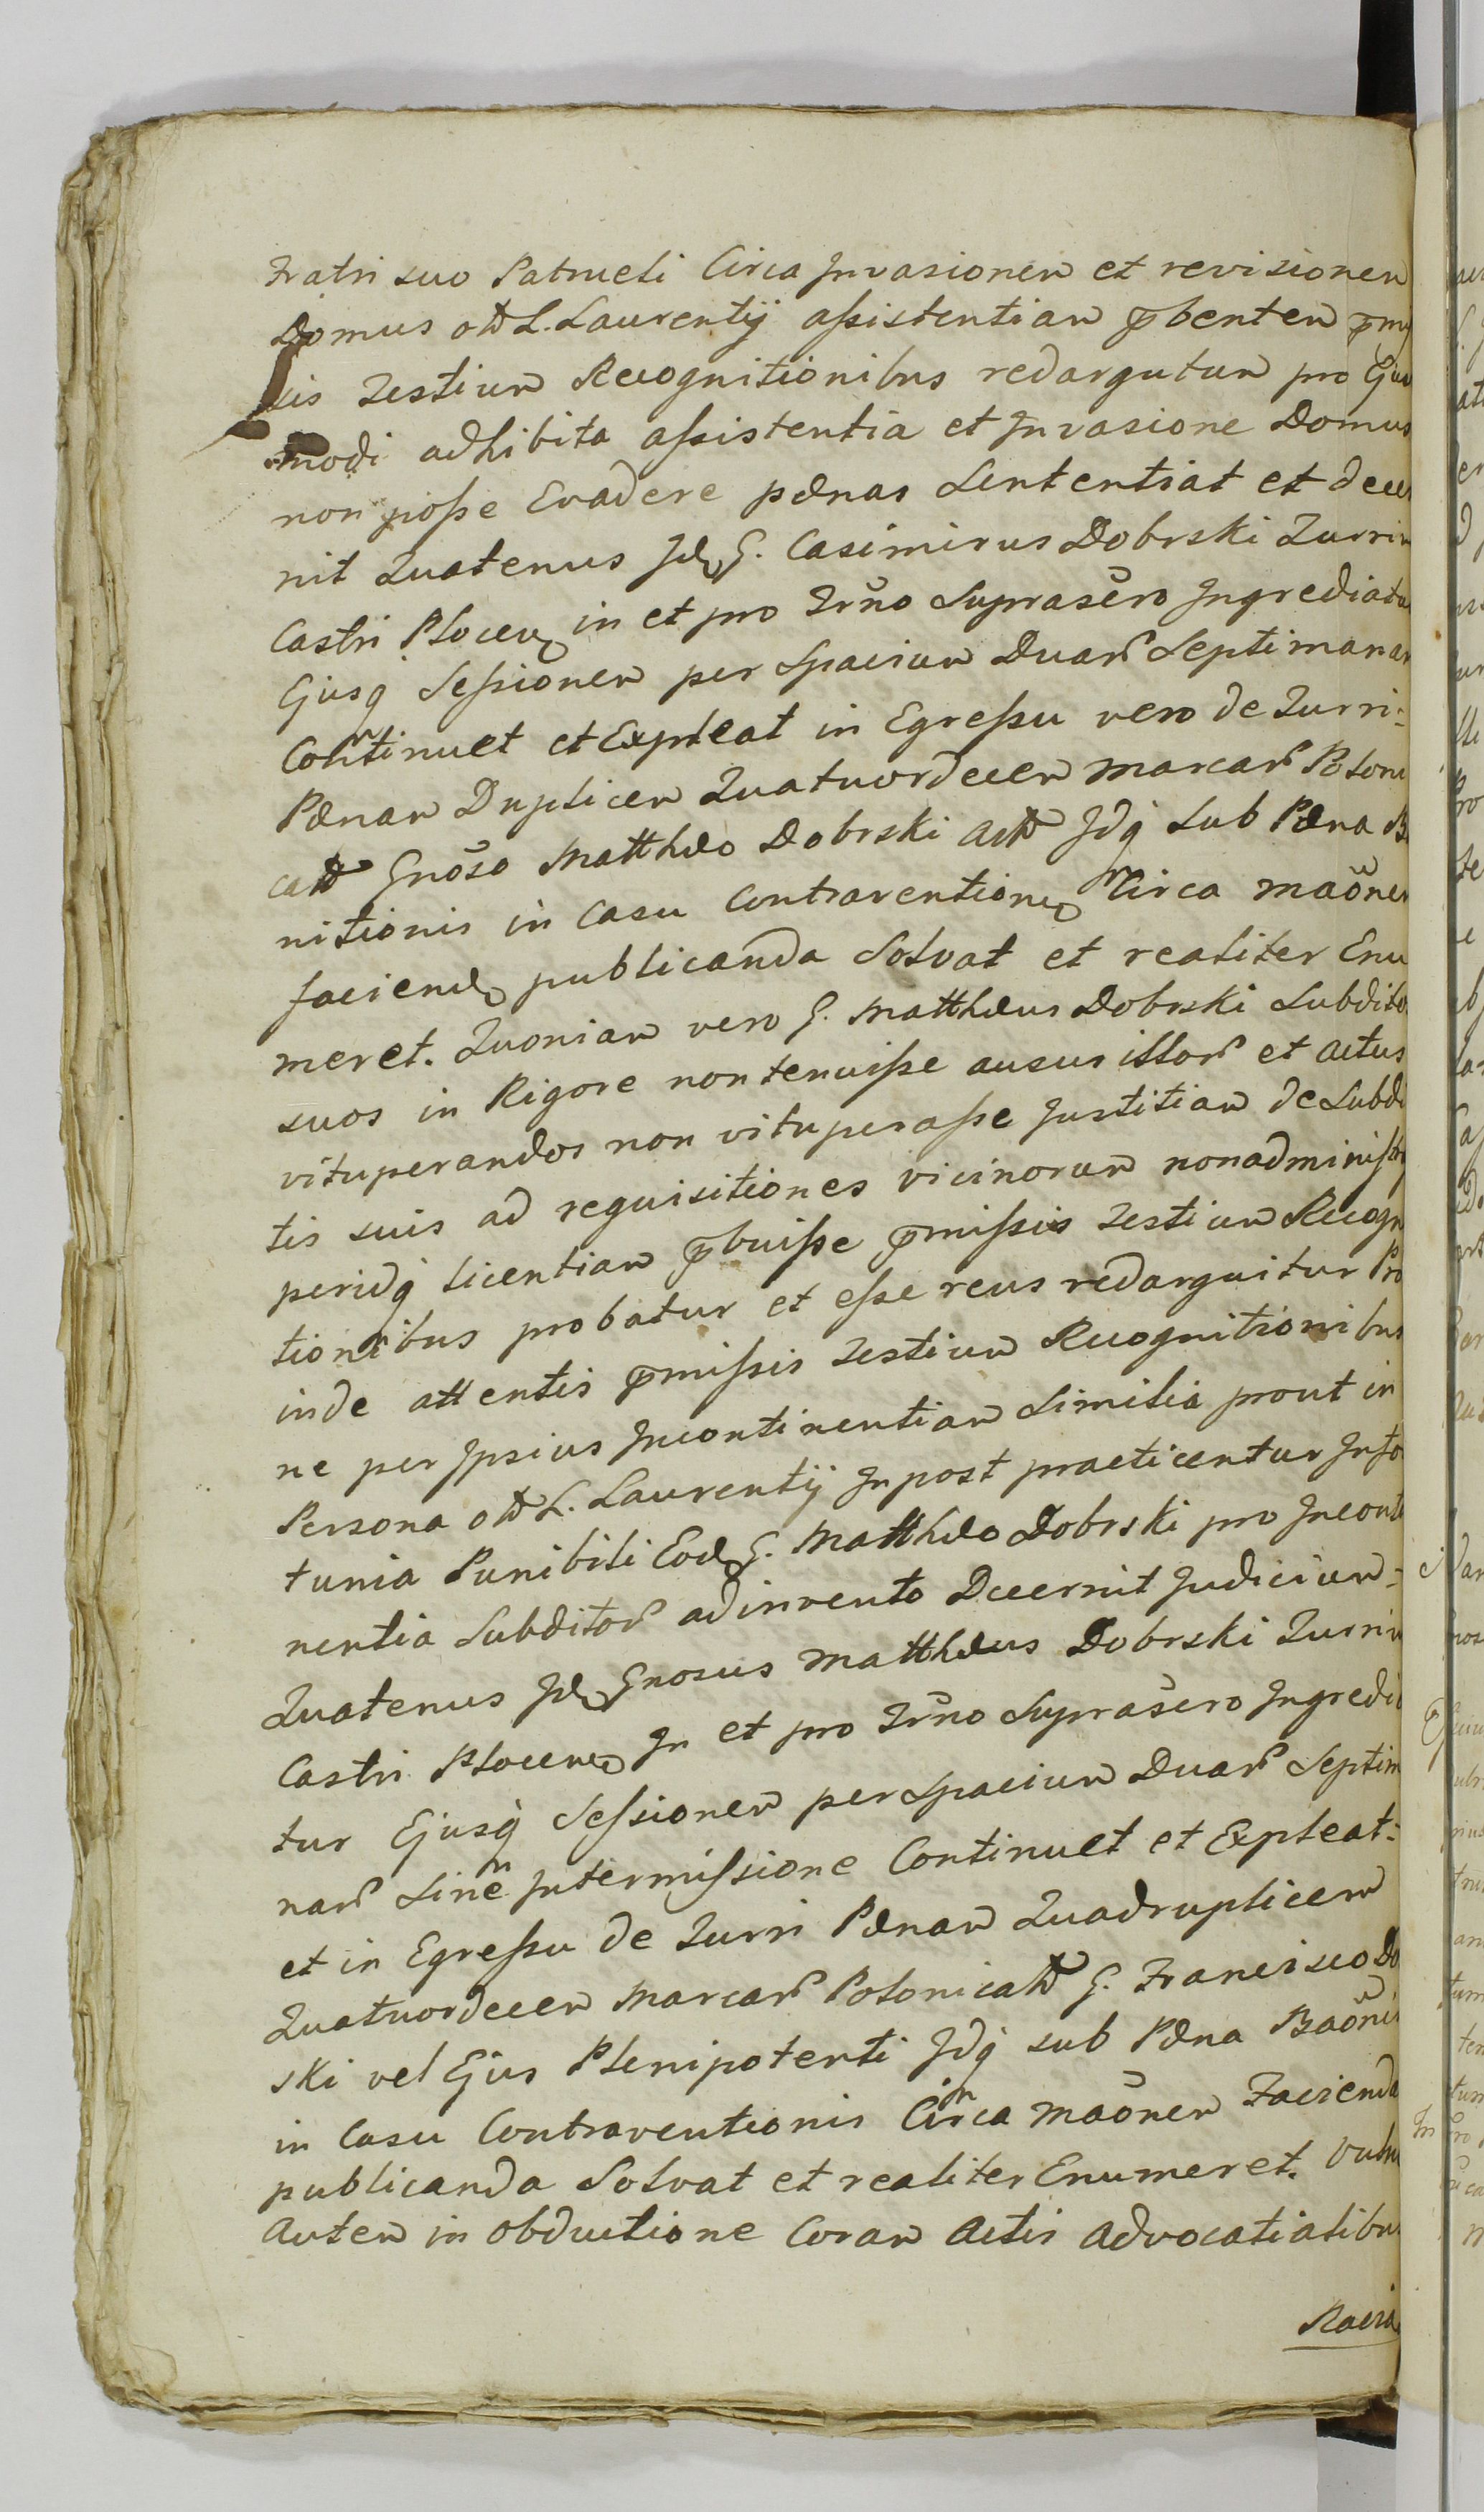 Fratri suo Patrueli Circa Invasionem et revisionem
Domus ottL. Laurentij assistentiam p̄bentem p̄mis
sis Testium Recognitionibus redargutum pro Ejus
modi adhibita assistentia et Invasione Domus
non posse Evadere pænas Sententiat et decer
nit Quatenus Id. G. Casimirus Dobrski Turrim
Castri Plocen in et pro Trmno Suprascro Ingrediatur
Ejusq Sessionem per Spacium Duar Septimanar
Continuet et Expleat in Egressu vero de Turri=
Pænam Duplicem Quatuordecem marcar Poloni
catt Gnoso Matthæo Dobrski Actt Idq sub Pæna Ba
nitionis in Casu Contraventionis Circa maõnem
faciend publicanda Solvat et realiter Enu
meret. Quoniam vero G. Matthæus Dobrski Subditos
suos in Rigore non tenuisse ausus illor et actus
vituperandos non vituperasse Justitiam de Subdi
tis suis ad requisitiones vicinorum nonadministr
peridq licentiam p̄buisse p̄missis Testium Recogni
tionibus probatur et esse reus redarguitur Pro
inde attentis p̄missis Testium Recognitionibus
ne per Ipsius Incontinentiam Similia prout in
Persona ottL. Laurentij Inpost practicentur Infor
tunia Punibili Eod G. Matthæo Dobrski pro Inconti
nentia Subditor adinvento Decernit Judicium=
Quatenus Id Gnosus Matthæus Dobrski Turrim
Castri Plocen In et pro Trmno Suprascro Ingredia
tur Ejusq Sessionem per Spacium Duar Septima
nar Sine Intermissione Continuet et Expleat=
et in Egressu de Turri Pænam Quadruplicem
Quatuordecem Marcar Polonicatt G. Francisco Do
ski vel Ejus Plenipotenti Idq sub Pæna Baõnis
in Casu Contraventionis Circa maõnem Faciend
publicanda Solvat et realiter Enumeret. Vuln
Autem in Obductione Coram Actis Advocatialibus